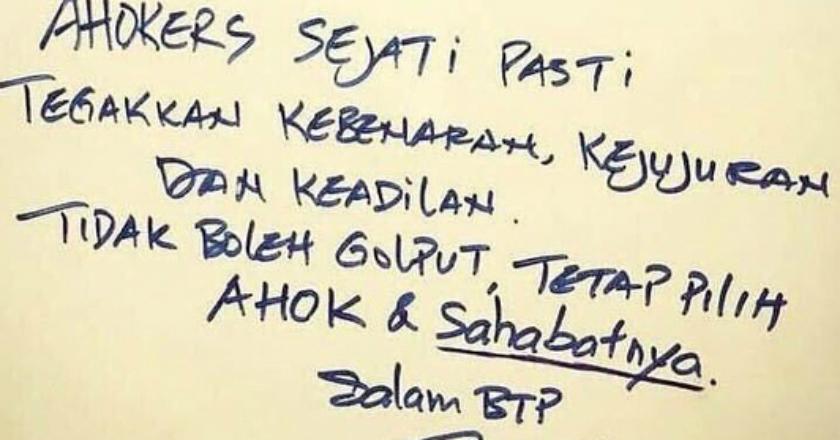 AHOKERS SEJATi PASTi
TEGAKKAN KEBENARAN, KEJUJURAN
DAN KEADiLAN.
TIDAK BOLEH GOLPUT, TETAP PiLIH
AHOK & Sahabatnya.
Salam BTP